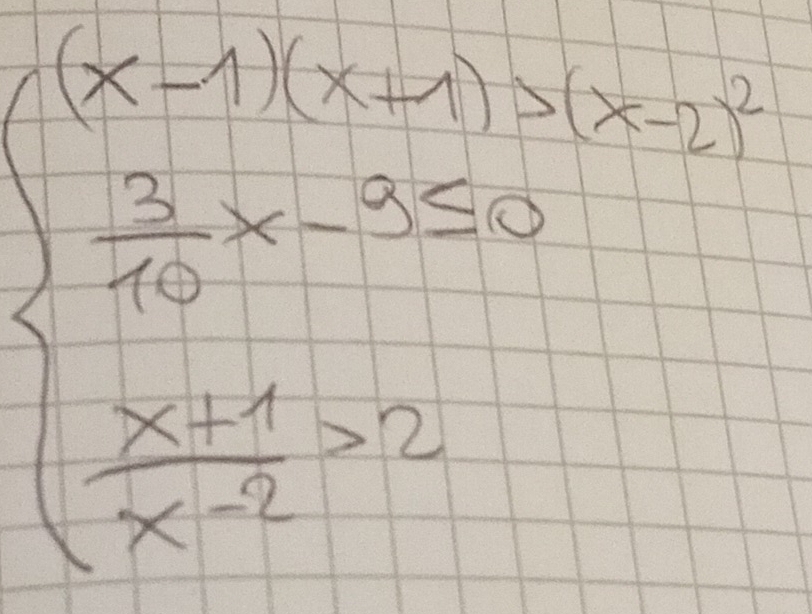 (x-1)(x+1)>(x-2)²
3/10 x - 9 ≤ 0
x+1/x-2 > 2